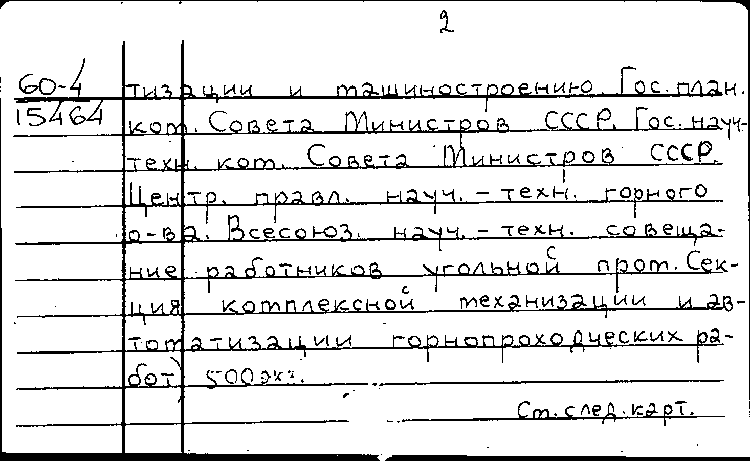 2
60-4
15464
тизации и машиностроению. Гос. план.
ком. Совета Министров СССР. Гос. науч-
техн. ком. Совета Министров СССР.
Центр. правл. науч. - техн. горного
о-ва. Всесоюз. науч. - техн. совеща-
ние работников угольной пром. Сек-
ция комплексной механизации и ав-
томатизации горнопроходческих ра-
бот) 500 экз.
См. след. карт.